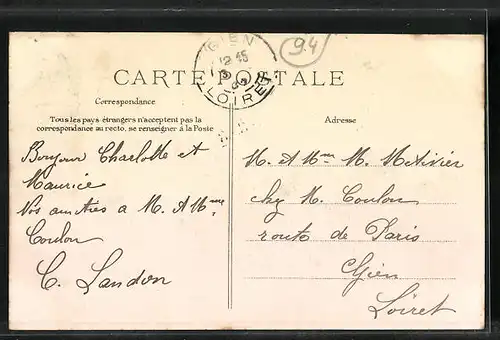 GIEN
12 45
LOIRET
94
CARTE POSTALE
Correspondance
Tous les pays étrangers n'acceptent pas la
correspondance au recto, se renseigner à la Poste
Bonjour Charlotte et
Maurice
Nos amitiés a M. & Mme
Coulon
C. Landon
Adresse
M. & Mme M. Métivier
chez M. Coulon
route de Paris
Gien
Loiret